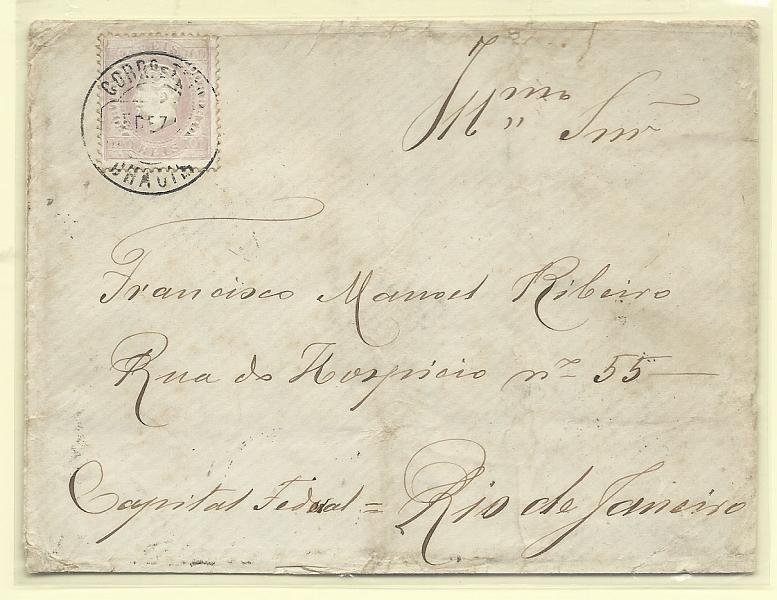 CORRO
DEZ
BRAGA
REIS
Illmo Snr
Francisco Manoel Ribeiro
Rua do Hospicio nº 55
Capital Federal = Rio de Janeiro